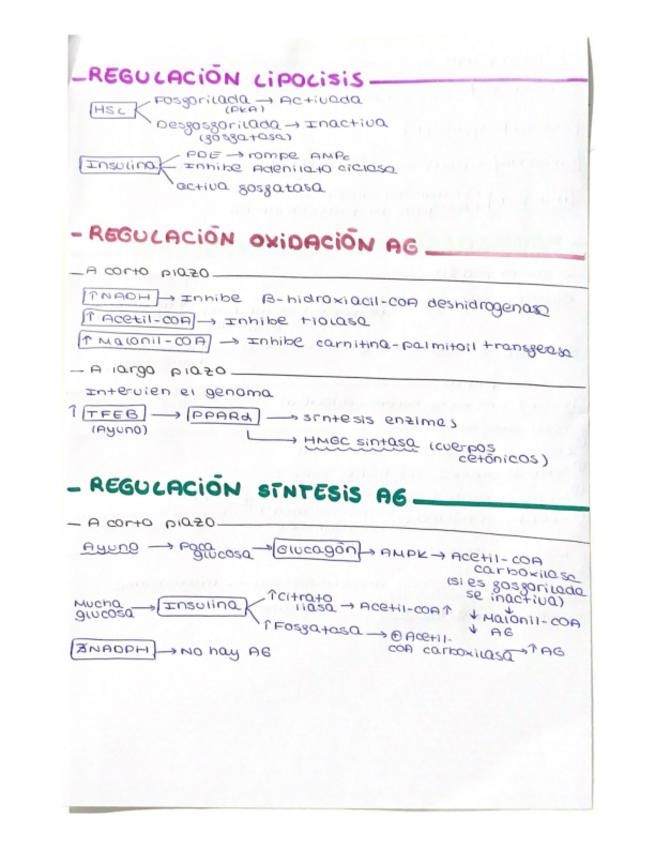 - REGULACIÓN LIPOLISIS
HSL
Fosforilada → Activada
(PKA)
Desfosforilada → Inactiva
(fosfatasa)
Insulina
PDE → rompe AMPc
Inhibe Adenilato ciclasa
activa fosfatasa
- REGULACIÓN OXIDACIÓN AG
- A corto plazo
↑NADH → Inhibe β-hidroxiacil-COA deshidrogenasa
↑ Acetil-COA → Inhibe tiolasa
↑ Malonil-COA → Inhibe carnitina-palmitoil transferasa
- A largo plazo
Intervien el genoma
↑ TFEB → PPARα → síntesis enzimas
(Ayuno)
→ HMGC sintasa (cuerpos
cetónicos)
- REGULACIÓN SÍNTESIS AG
- A corto plazo
Ayuno → Poca glucosa → Glucagón → AMPK → Acetil-COA
carboxilasa
(si es fosforilada
se inactiva)
↓
↓ Malonil-COA
↓ AG
Mucha glucosa → Insulina
↑Citrato liasa → Acetil-COA↑
↑Fosfatasa → ⊕ Acetil-
COA carboxilasa → ↑ AG
∄NADPH → No hay AG